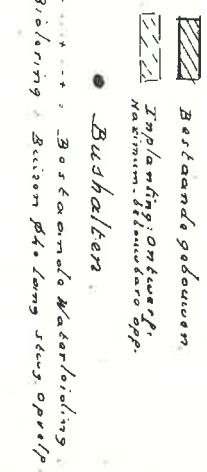 Bestaande gebouwen
Inplanting: ontwerp.
Maximum - bebouwbare opp.
Bushalten
Bestaande Waterleiding
Riolering Buizen lang